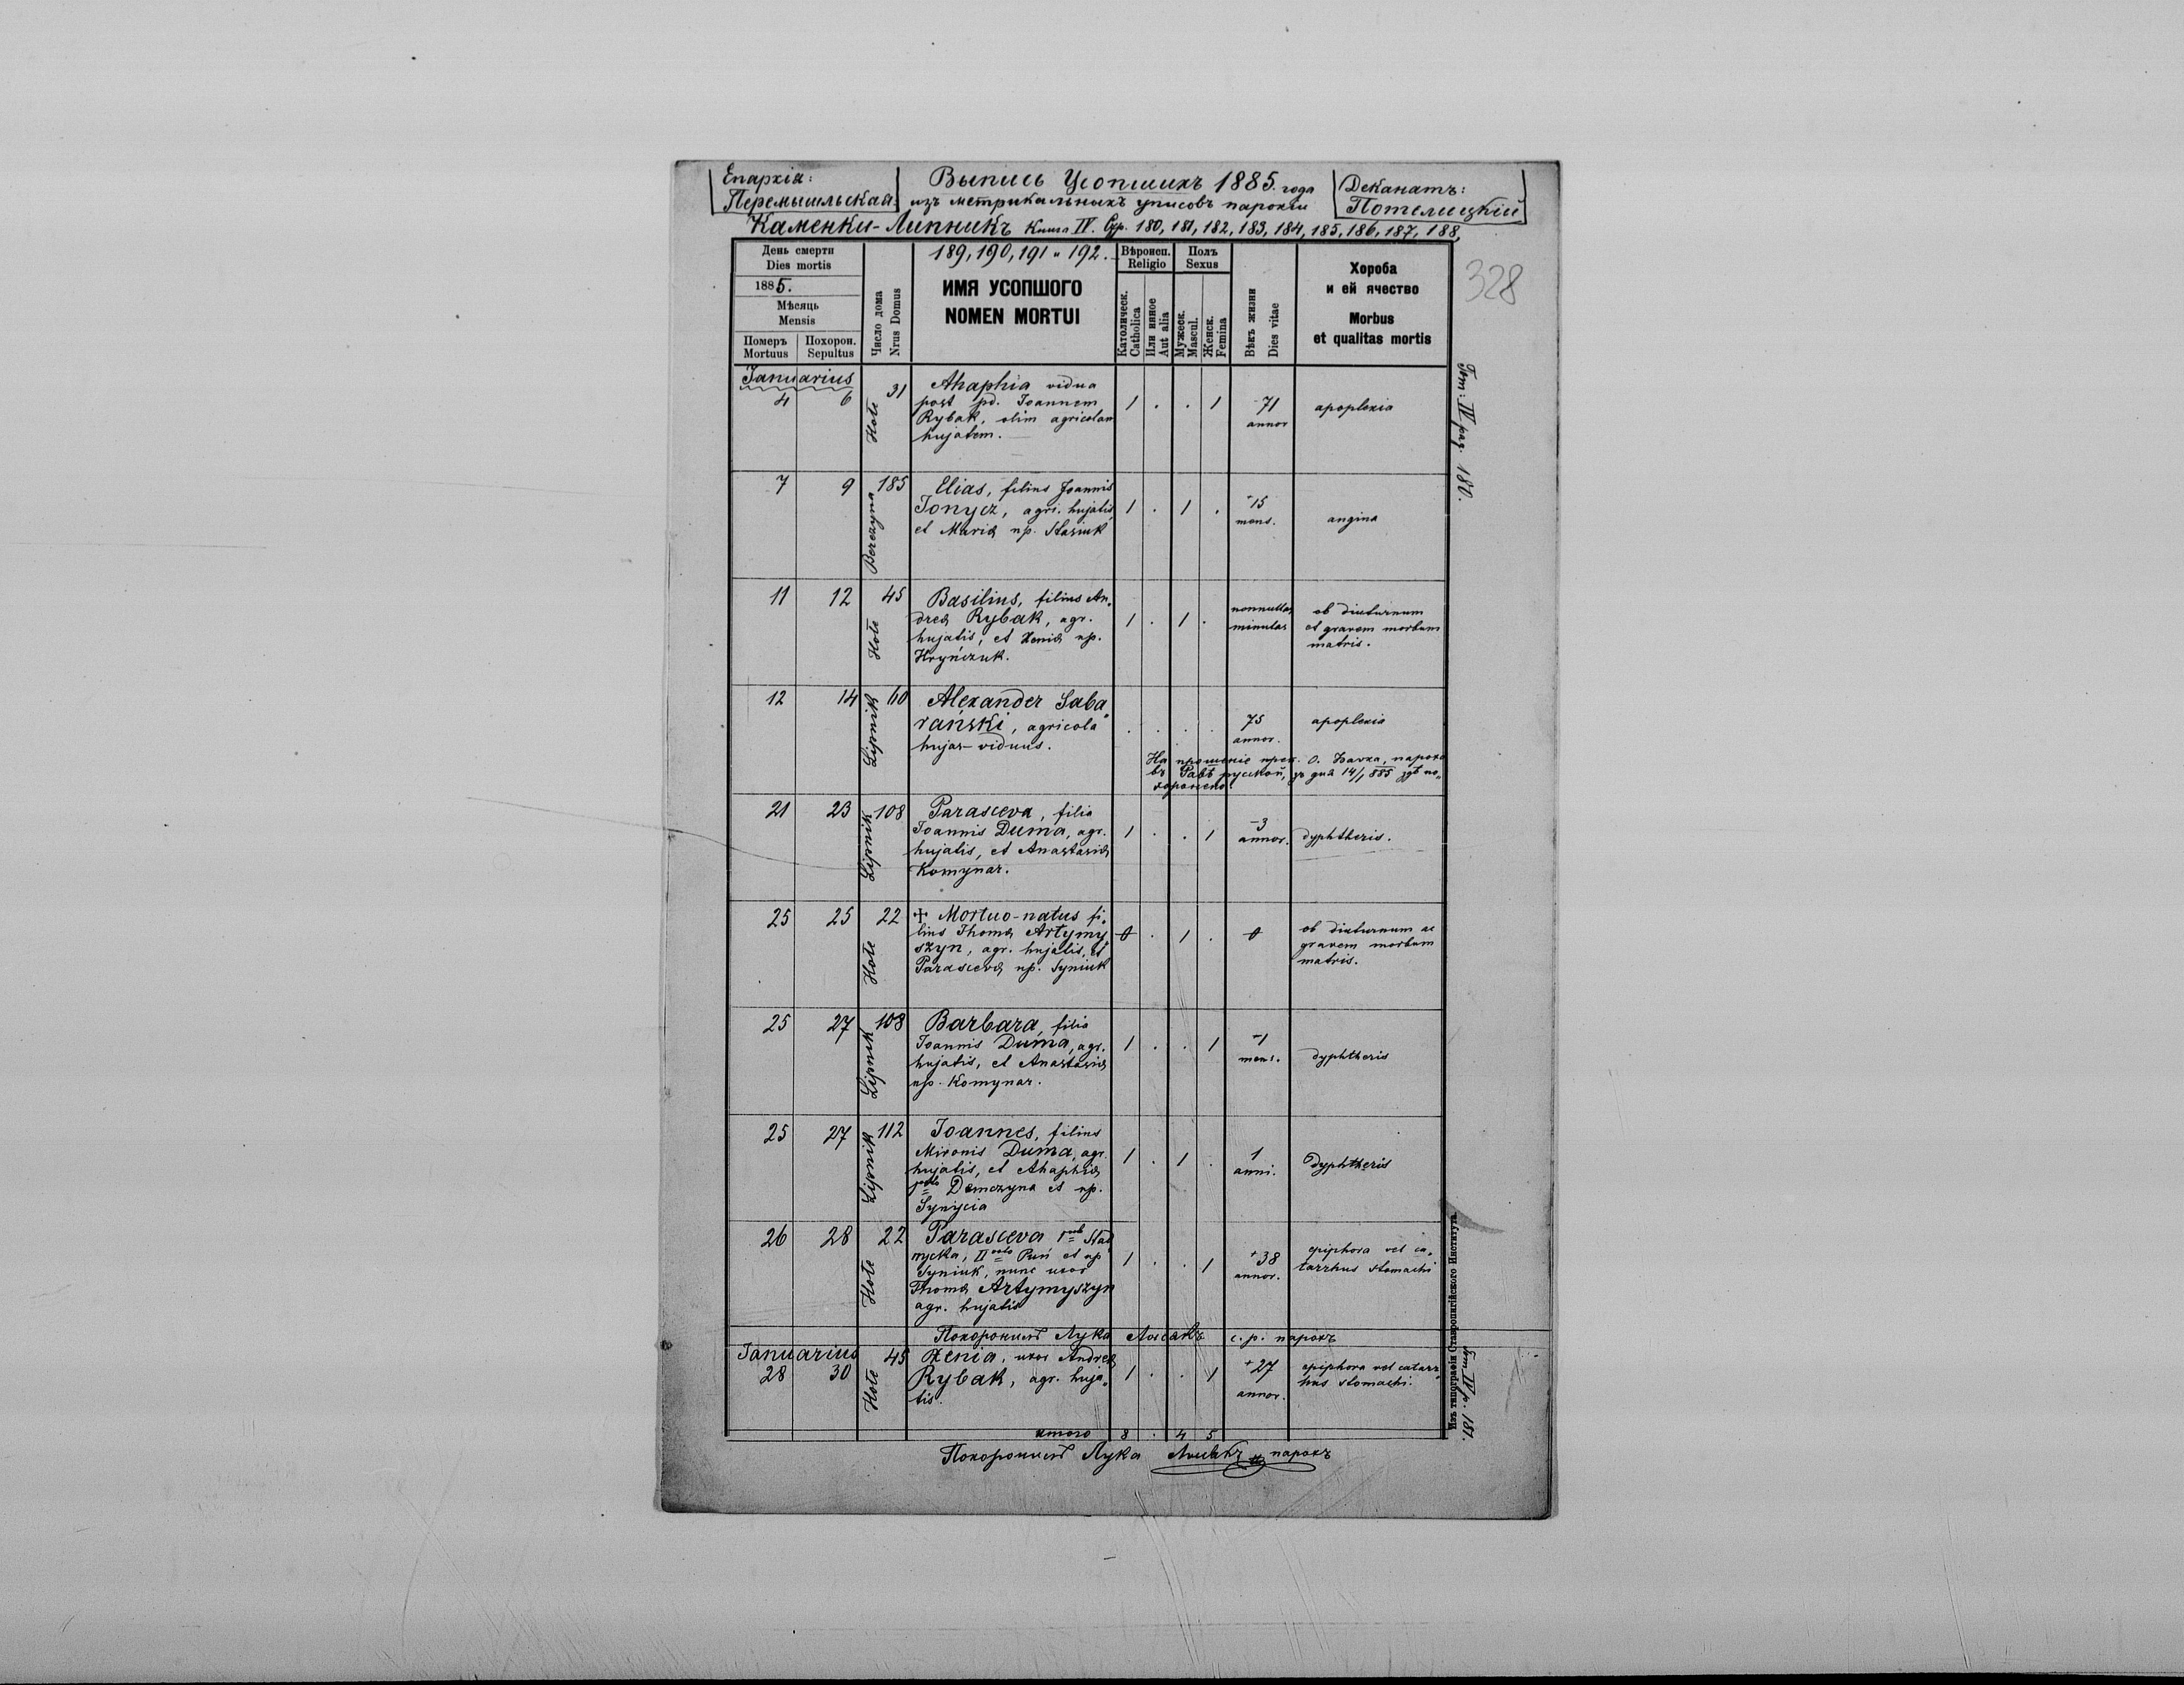 Епархія:
Перемышльская
Выпись Усопшихъ 1885. года
изъ метрикальныхъ уписовъ парохіи
Деканатъ:
Потелицкій
Каменки-Липникъ Книга IV. Стр. 180, 181, 182, 183, 184, 185, 186, 187, 188,
189, 190, 191 и 192.
328
День смерти
Dies mortis
1885.
Мѣсяць
Mensis
Померъ
Mortuus
Похорон.
Sepultus
Число дома
Nrus Domus
ИМЯ УСОПШОГО
NOMEN MORTUI
Вѣроисп.
Religio
Католическ.
Catholica
Или инное
Aut alia
Полъ
Sexus
Мужеск.
Mascul.
Женск.
Femina
Вѣкъ жизни
Dies vitae
Хороба
и ей ячество
Morbus
et qualitas mortis
Januarius
4 6 31 Hołe
Ahaphia vidua
post pd. Joannem
Rybak, olim agricolam
hujatem.
1 . . 1
71
annor
apoplexia
Tom: IV pag. 180.
7 9 185 Berezyna
Elias, filius Joannis
Jonycz, agri. hujatis,
et Mariæ np. Stasiuk
1 . 1 .
15
mens.
angina
11 12 45 Hołe
Basilius, filius An„
dreæ Rybak, agr.
hujatis, et Xeniæ np.
Hryńczuk.
1 . 1 .
nonnullas
minutas
ob diuturnum
et gravem morbum
matris.
12 14 60 Lipnik
Alexander Saba„
rański, agricola
hujas viduus.
. . . .
75
annor.
apoplexia
На прошеніе преп. О. парохо
въ Равѣ русской, зъ дня 14/1 885 здѣ по„
хоронено.
21 23 108 Lipnik
Parasceva, filia
Joannis Duma, agr.
hujatis, et Anastasiæ
Komynar.
1 . . 1
3
annor.
dyphtheris.
25 25 22 Hołe
✝ Mortuo-natus fi„
lius Thomæ Artymy
szyn, agr. hujatis, et
Parascevæ np. Syniuk
0 . 1 .
0
ob diuturnum ac
gravem morbum
matris.
25 27 108 Lipnik
Barbara, filia
Joannis Duma, agr.
hujatis, et Anastasiæ
np. Komynar.
1 . . 1
1
mens.
dyphtheris
25 27 112 Lipnik
Joannes, filius
Mironis Duma, agr.
hujatis, et Ahaphiæ
Demczyna et np.
Synycia
1 . 1 .
1
anni.
Dyphtheris
26 28 22 Hołe
Parasceva
II Puń et np
Syniuk, nunc uxor
Thomæ Artymyszyn
agr. hujatis
1 . . 1
38
annor.
epiphora vel ca„
tarrhus stomachi
Похоронилъ Лука с. р. парохъ
Januarius
28 30 45 Hołe
Xenia, uxor Andreæ
Rybak, agr. huja„
tis.
1 . . 1
27
annor.
epiphora vel catarr„
hus stomachi.
Tom IV p. 181.
итого 8 . 4 5
Похоронилъ Лука парохъ
Изъ типографіи Ставропигійского Института.